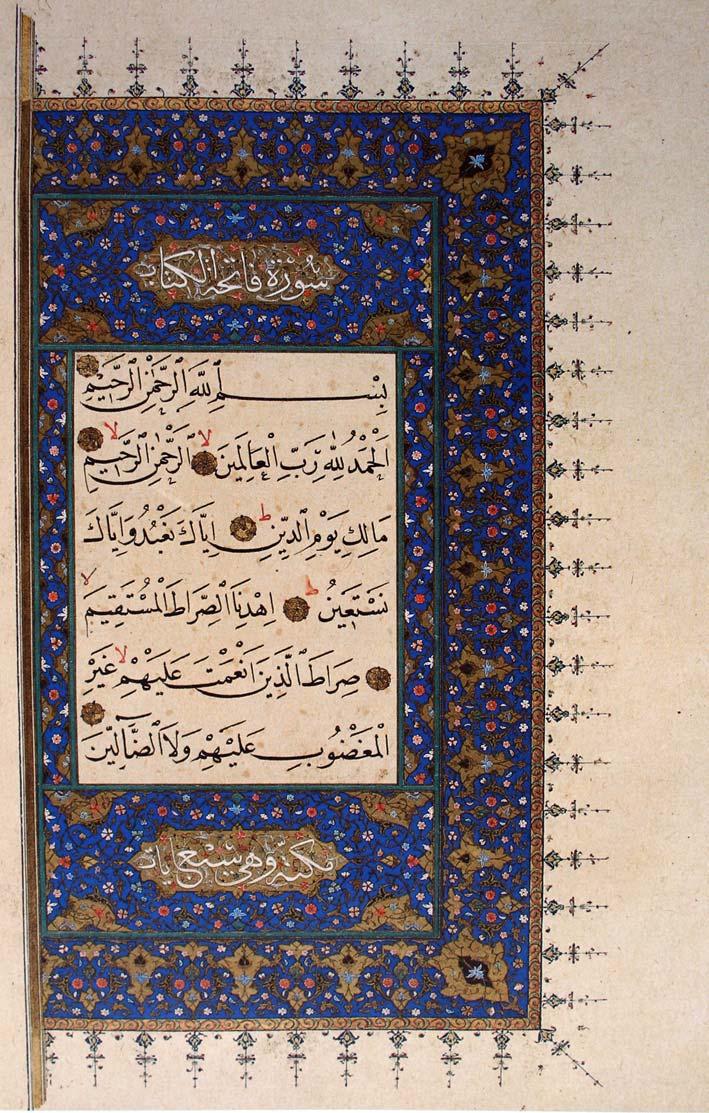 سُورَة فَاتِحَة الكِتَاب
بِسْمِ اللَّهِ الرَّحْمٰنِ الرَّحِيمِ
اَلْحَمْدُ لِلّٰهِ رَبِّ الْعَالَمِينَ لا الرَّحْمٰنِ الرَّحِيمِ لا
مَالِكِ يَوْمِ الدِّينِ ط اِيَّاكَ نَعْبُدُ وَاِيَّاكَ
نَسْتَعِينُ ط اِهْدِنَا الصِّرَاطَ الْمُسْتَقِيمَ لا
صِرَاطَ الَّذِينَ اَنْعَمْتَ عَلَيْهِمْ لا غَيْرِ
الْمَغْضُوبِ عَلَيْهِمْ وَلَا الضَّٓالِّينَ
مكية وهي سبع ايات